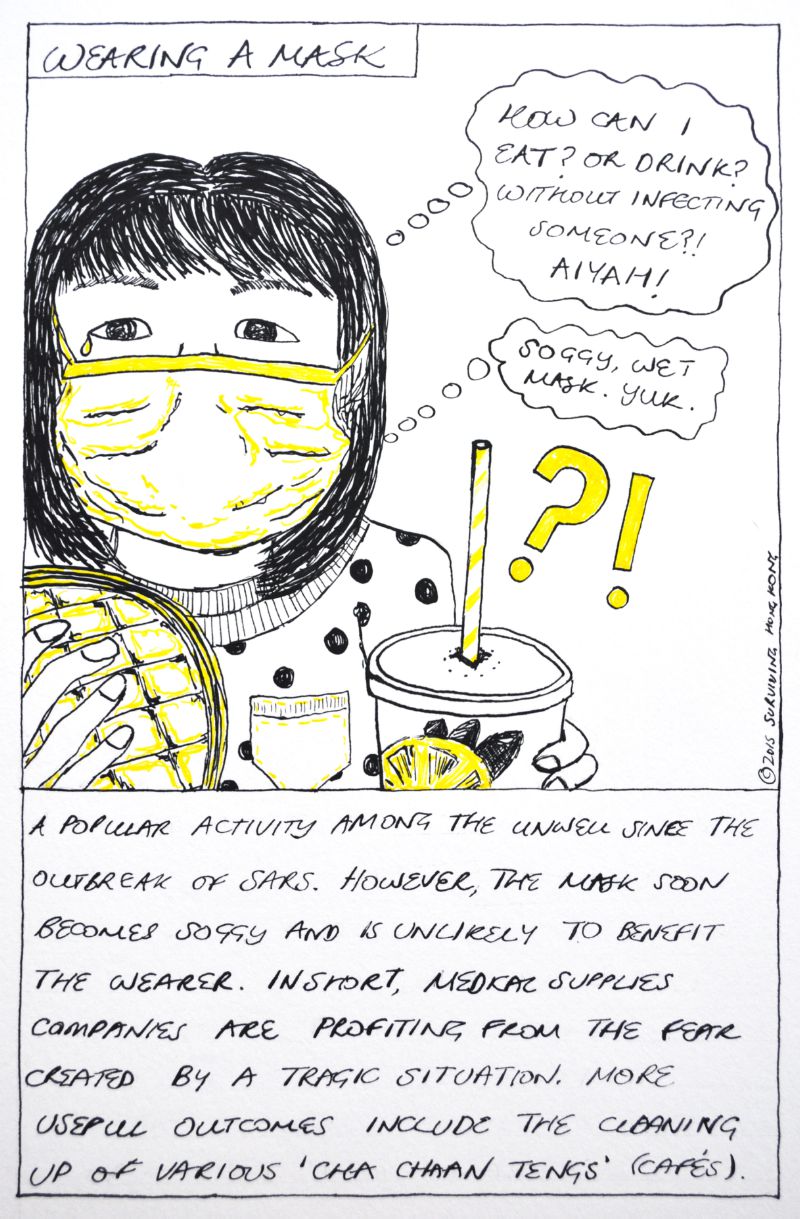 WEARING A MASK
HOW CAN I
EAT? OR DRINK?
WITHOUT INFECTING
SOMEONE?!
AIYAH!
SOGGY, WET
MASK. YUK.
?!
©2015 SURVIVING HONG KONG
A POPULAR ACTIVITY AMONG THE UNWELL SINCE THE
OUTBREAK OF SARS. HOWEVER, THE MASK SOON
BECOMES SOGGY AND IS UNLIKELY TO BENEFIT
THE WEARER. IN SHORT, MEDICAL SUPPLIES
COMPANIES ARE PROFITING FROM THE FEAR
CREATED BY A TRAGIC SITUATION. MORE
USEFUL OUTCOMES INCLUDE THE CLEANING
UP OF VARIOUS 'CHA CHAAN TENGS' (CAFÉS).